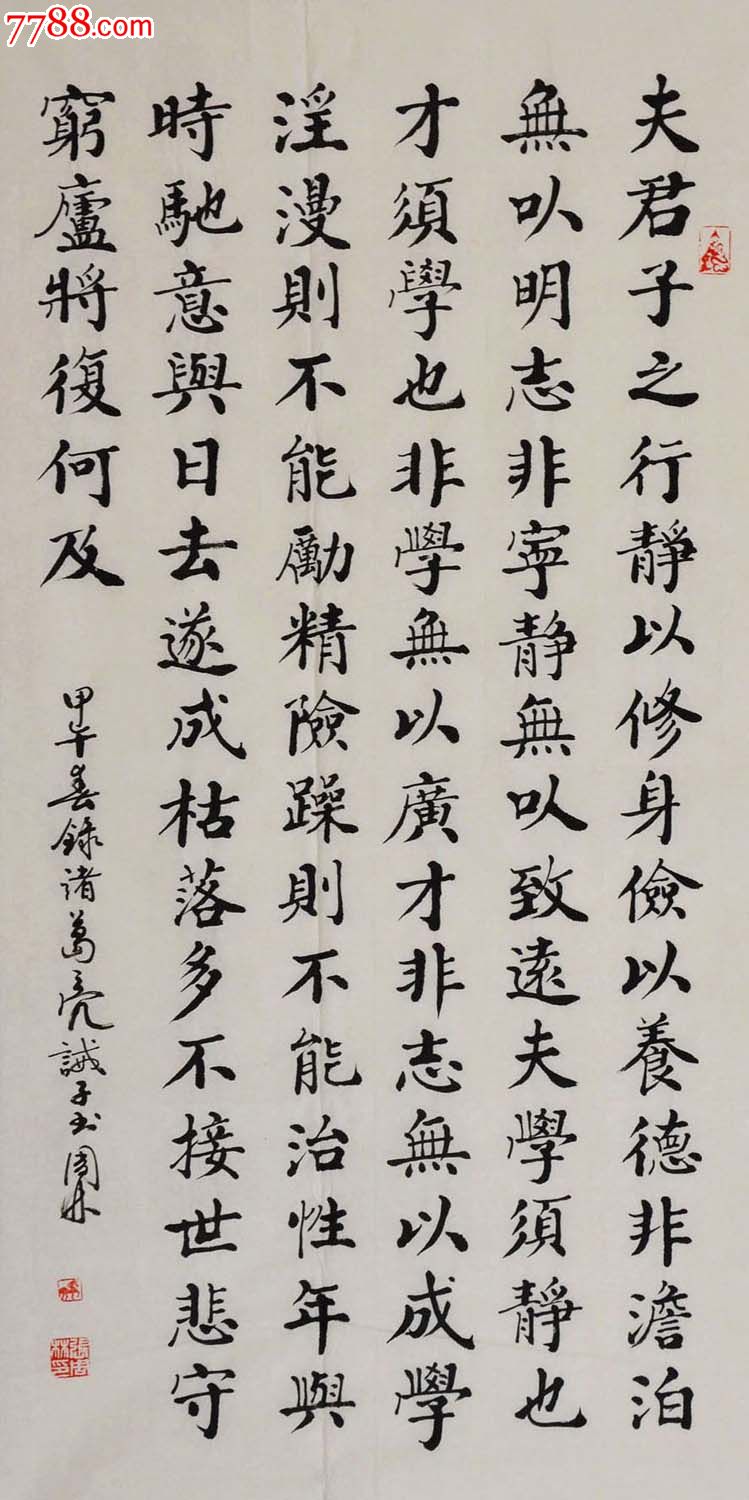 7788.com
夫君子之行靜以修身儉以養德非澹泊
無以明志非寧靜無以致遠夫學須靜也
才須學也非學無以廣才非志無以成學
淫漫則不能勵精險躁則不能治性年與
時馳意與日去遂成枯落多不接世悲守
窮廬將復何及
甲午春錄诸葛亮誡子书周林
張周林印